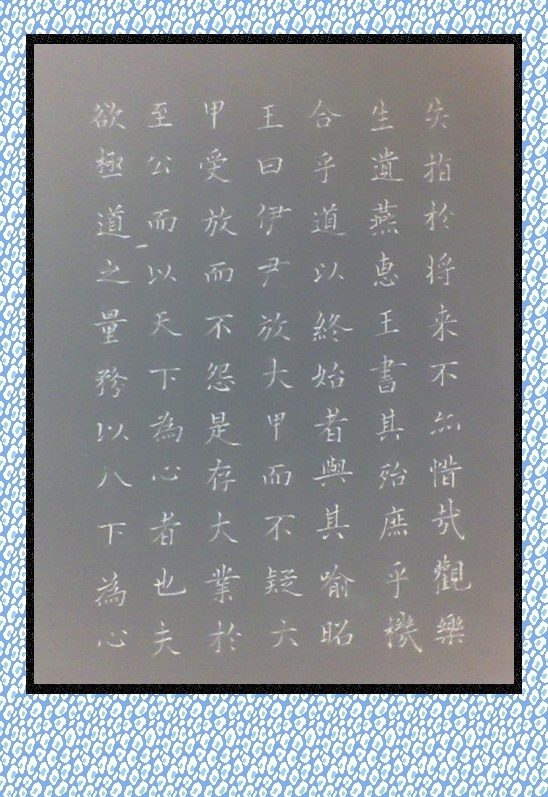 失指於将来不亦惜哉觀樂
生遺燕惠王書其殆庶乎機
合乎道以終始者與其喻昭
王曰伊尹放大甲而不疑大
甲受放而不怨是存大業於
至公而以天下為心者也夫
欲極道之量務以天下為心